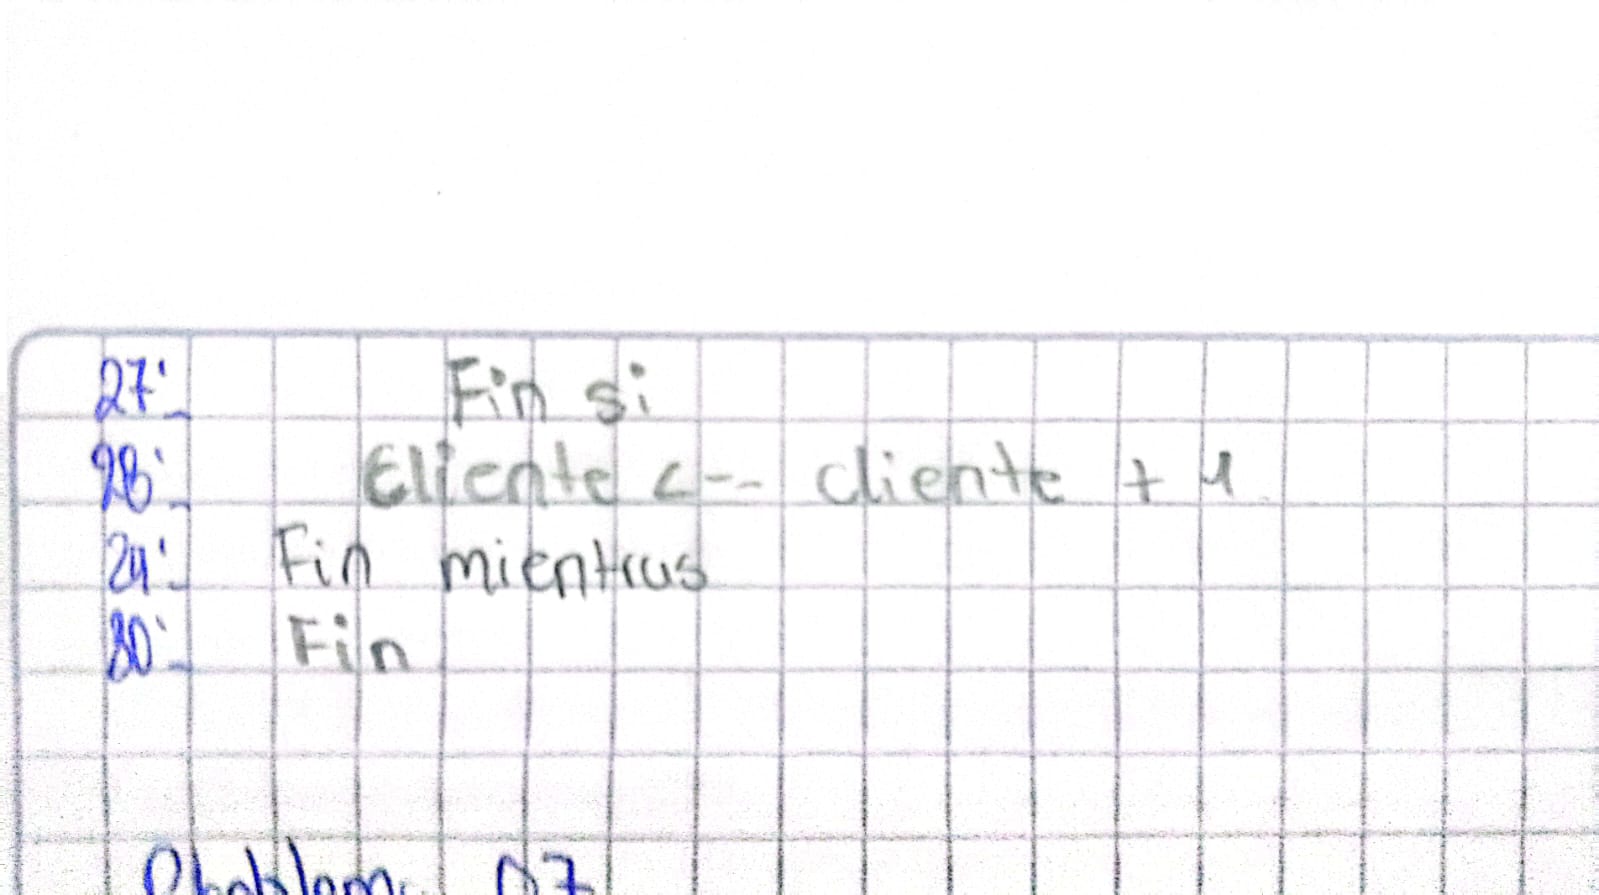 27._ Fin si
28._ Cliente <-- cliente + 1
29._ Fin mientras
30._ Fin
Problema 07